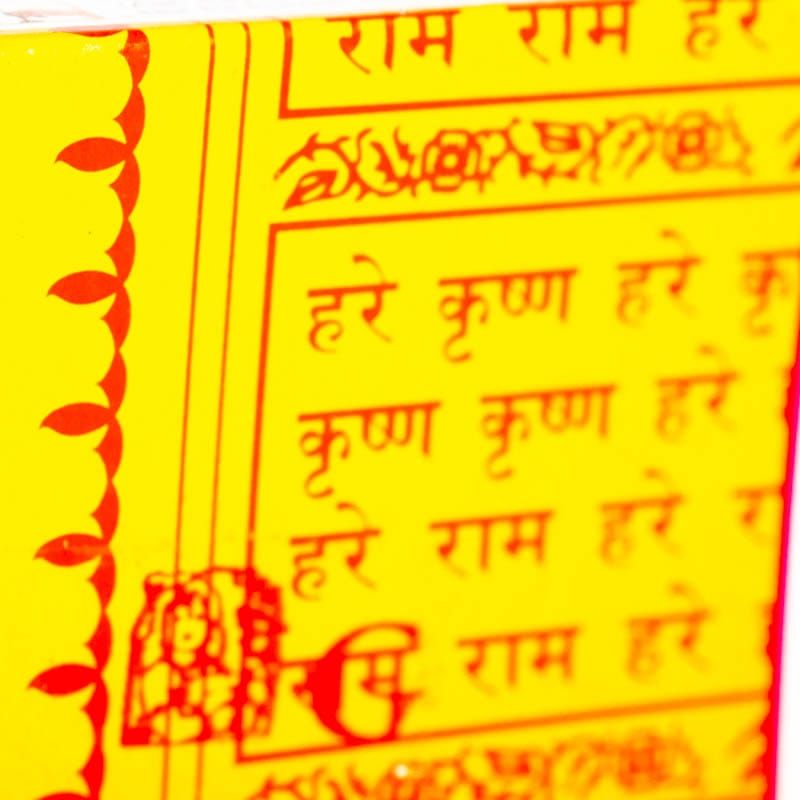 राम राम हरे
हरे कृष्ण हरे कृ
कृष्ण कृष्ण हरे
हरे राम हरे रा
राम राम हरे
G